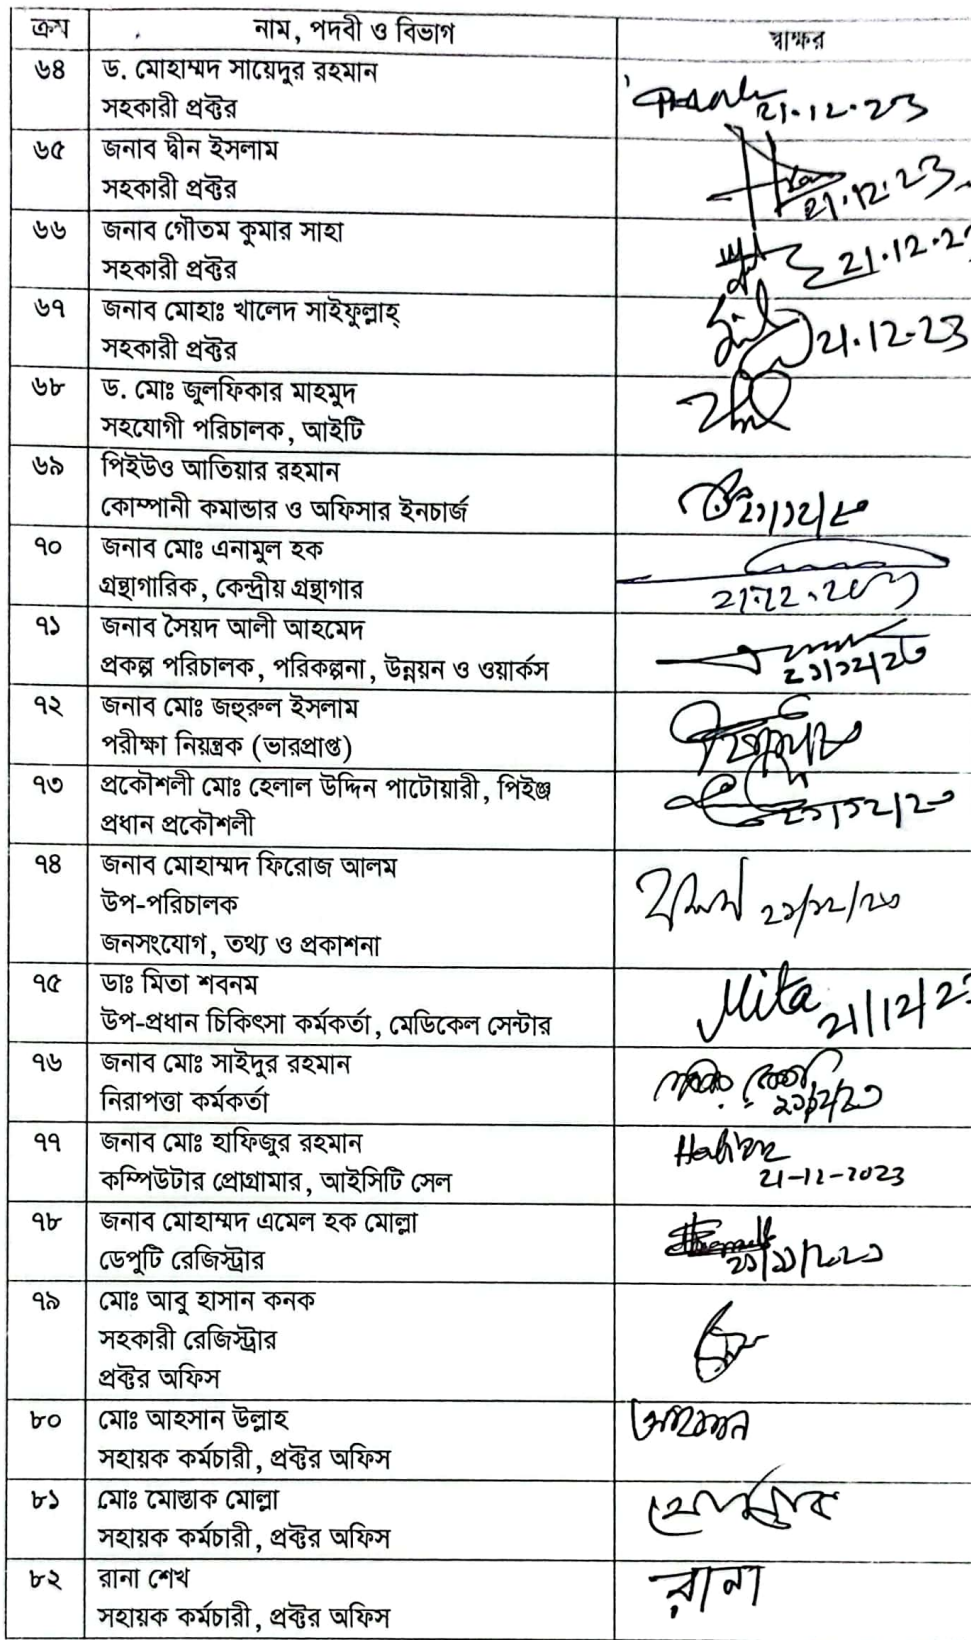 ক্রম নাম, পদবী ও বিভাগ স্বাক্ষর
৬৪ ড. মোহাম্মদ সায়েদুর রহমান
সহকারী প্রক্টর 21.12.23
৬৫ জনাব দ্বীন ইসলাম
সহকারী প্রক্টর 21.12.23
৬৬ জনাব গৌতম কুমার সাহা
সহকারী প্রক্টর 21.12.2
৬৭ জনাব মোহাঃ খালেদ সাইফুল্লাহ্
সহকারী প্রক্টর 21.12.23
৬৮ ড. মোঃ জুলফিকার মাহমুদ
সহযোগী পরিচালক, আইটি
৬৯ পিইউও আতিয়ার রহমান
কোম্পানী কমান্ডার ও অফিসার ইনচার্জ
৭০ জনাব মোঃ এনামুল হক
গ্রন্থাগারিক, কেন্দ্রীয় গ্রন্থাগার
৭১ জনাব সৈয়দ আলী আহমেদ
প্রকল্প পরিচালক, পরিকল্পনা, উন্নয়ন ও ওয়ার্কস ২১/১২/২৩
৭২ জনাব মোঃ জহুরুল ইসলাম
পরীক্ষা নিয়ন্ত্রক (ভারপ্রাপ্ত)
৭৩ প্রকৌশলী মোঃ হেলাল উদ্দিন পাটোয়ারী, পিইঞ্জ
প্রধান প্রকৌশলী ২১/১২/২৩
৭৪ জনাব মোহাম্মদ ফিরোজ আলম
উপ-পরিচালক ২১/১২/২৩
জনসংযোগ, তথ্য ও প্রকাশনা
৭৫ ডাঃ মিতা শবনম Mita
উপ-প্রধান চিকিৎসা কর্মকর্তা, মেডিকেল সেন্টার 21/12/2
৭৬ জনাব মোঃ সাইদুর রহমান
নিরাপত্তা কর্মকর্তা ২১/১২/২৩
৭৭ জনাব মোঃ হাফিজুর রহমান
কম্পিউটার প্রোগ্রামার, আইসিটি সেল 21-12-2023
৭৮ জনাব মোহাম্মদ এমেল হক মোল্লা
ডেপুটি রেজিস্ট্রার
৭৯ মোঃ আবু হাসান কনক
সহকারী রেজিস্ট্রার
প্রক্টর অফিস
৮০ মোঃ আহসান উল্লাহ
সহায়ক কর্মচারী, প্রক্টর অফিস
৮১ মোঃ মোস্তাক মোল্লা
সহায়ক কর্মচারী, প্রক্টর অফিস
৮২ রানা শেখ রানা
সহায়ক কর্মচারী, প্রক্টর অফিস